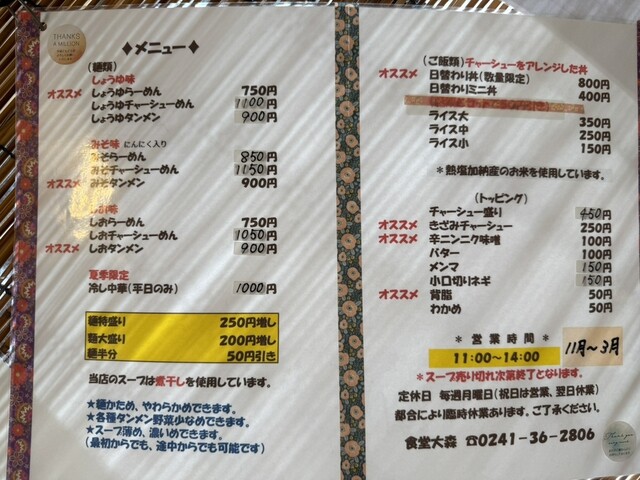 THANKS
A MILLION
♦メニュー♦
(麺類)
しょうゆ味
オススメ しょうゆらーめん 750円
しょうゆチャーシューめん 1100円
しょうゆタンメン 900円
みそ味 にんにく入り
みそらーめん 850円
みそチャーシューめん 1150円
オススメ みそタンメン 900円
しお味
しおらーめん 750円
しおチャーシューめん 1050円
オススメ しおタンメン 900円
夏季限定
冷し中華(平日のみ) 1000円
麺特盛り 250円増し
麺大盛り 200円増し
麺半分 50円引き
当店のスープは煮干しを使用しています。
★麺かため、やわらかめできます。
★各種タンメン野菜少なめできます。
★スープ薄め、濃いめできます。
(最初からでも、途中からでも可能です)
(ご飯類)チャーシューをアレンジした丼
オススメ 日替わり丼(数量限定) 800円
日替わりミニ丼 400円
ライス大 350円
ライス中 250円
ライス小 150円
*熱塩加納産のお米を使用しています。
(トッピング)
チャーシュー盛り 450円
オススメ きざみチャーシュー 250円
オススメ 辛ニンニク味噌 100円
バター 100円
メンマ 150円
小口切りネギ 150円
オススメ 背脂 50円
わかめ 50円
* 営業時間 *
11:00~14:00 11月~3月
*スープ売り切れ次第終了となります。
定休日 毎週月曜日(祝日は営業、翌日休業)
都合により臨時休業あります。ご了承ください。
食堂大森 ☎0241-36-2806